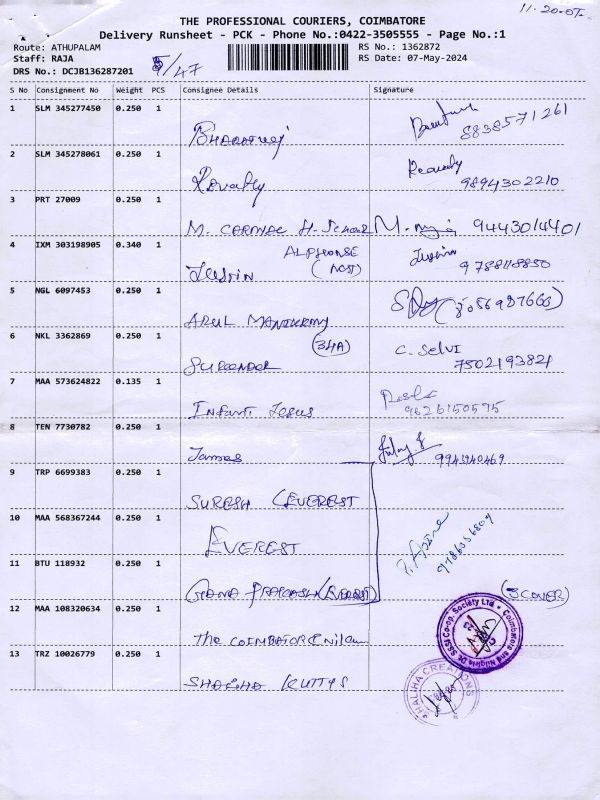 11-20-07
THE PROFESSIONAL COURIERS, COIMBATORE
Delivery Runsheet - PCK - Phone No.:0422-3505555 - Page No.:1
Route: ATHUPALAM RS No.: 1362872
Staff: RAJA RS Date: 07-May-2024
DRS No.: DCJB136287201 /47
S No Consignment No Weight PCS Consignee Details Signature
1 SLM 345277450 0.250 1 8838571261
2 SLM 345278061 0.250 1 9894302210
3 PRT 27009 0.250 1 M. CARMAL H. School 9443014401
4 IXM 303198905 0.340 1 Justin ALPHONSE 9788118850
5 NGL 6097453 0.250 1 ARUL
6 NKL 3362869 0.250 1 (34A) C. Selvi 7502193821
7 MAA 573624822 0.135 1 Infant Jesus 9626150575
8 TEN 7730782 0.250 1 James 9943940469
9 TRP 6699383 0.250 1 SURESH (EVEREST
10 MAA 568367244 0.250 1 EVEREST 9786356804
11 BTU 118932 0.250 1 (Everest) (3 COVER)
12 MAA 108320634 0.250 1 The COIMBATORE Nilgiri
Coimbatore and Nilgiris Dt. S&SI Co-op. Society Ltd
13 TRZ 10026779 0.250 1 KUTTYS
HALIHA CREATIONS